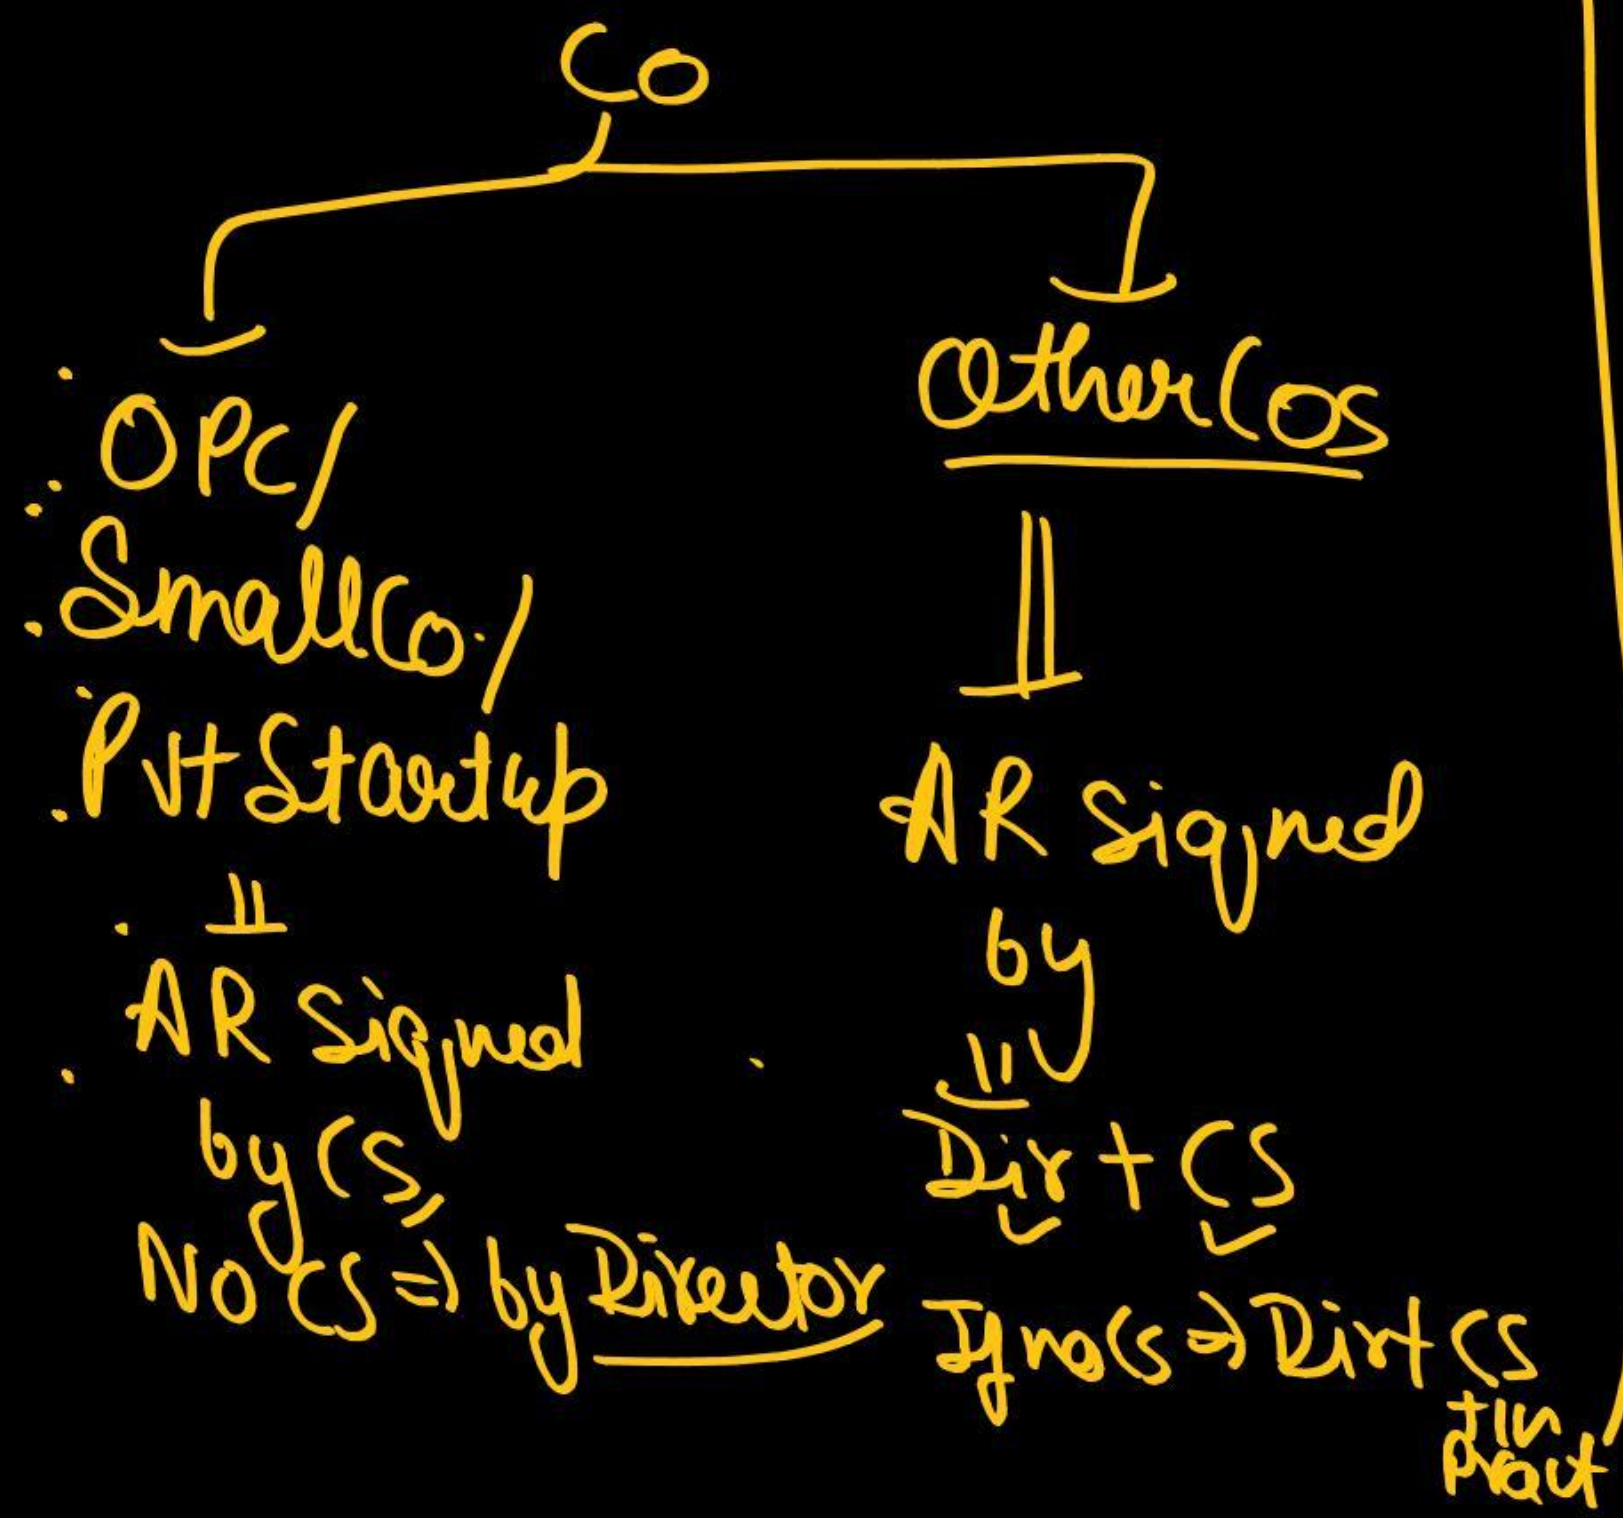 Co
OPC/
Small Co./
Pvt Startup
AR Signed
by CS,
No CS => by Director
Other Cos
AR Signed
by
Dir + CS
If no CS => Dir + CS
in
Pract